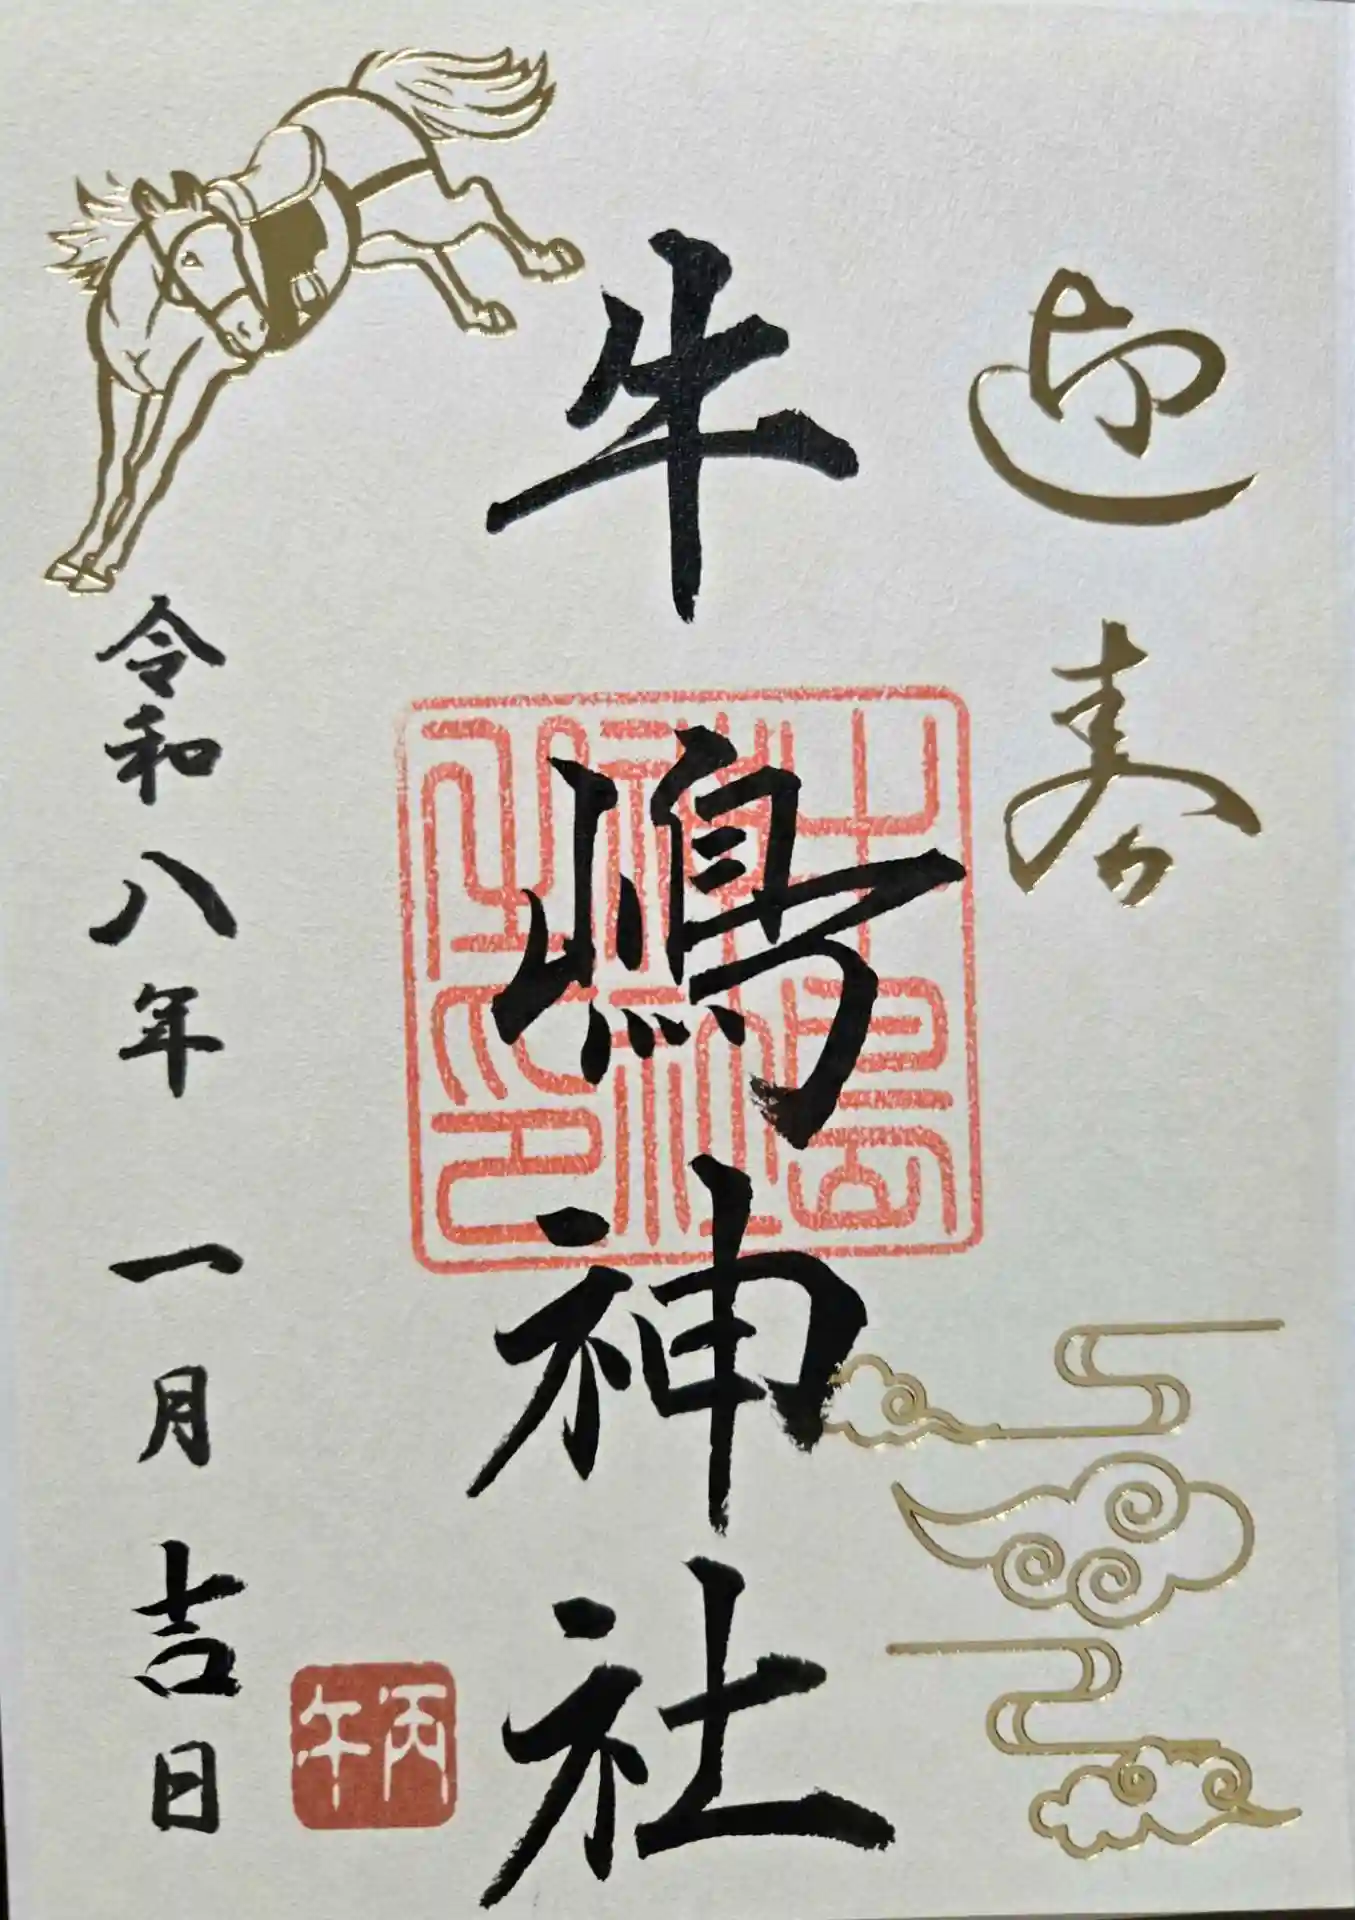 迎春
牛嶋神社
牛嶋神社之印
令和八年 一月 吉日
丙午